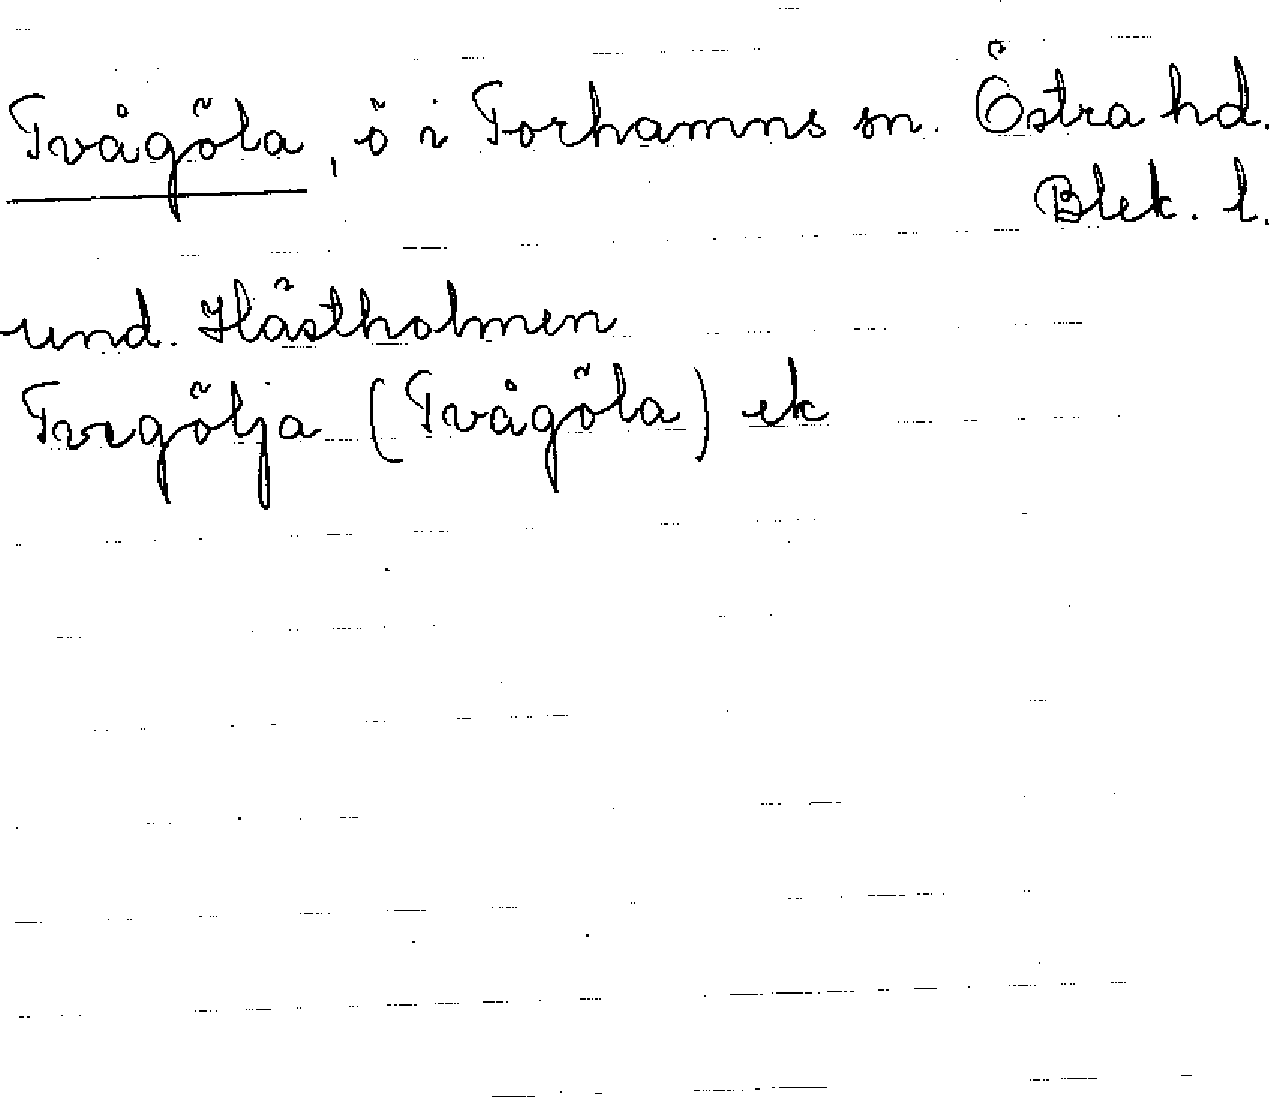 Tvågöla, ö i Torhamns sn. Östra hd.
Blek. l.
und. Hästholmen
Tvigölja (Tvågöla) ek